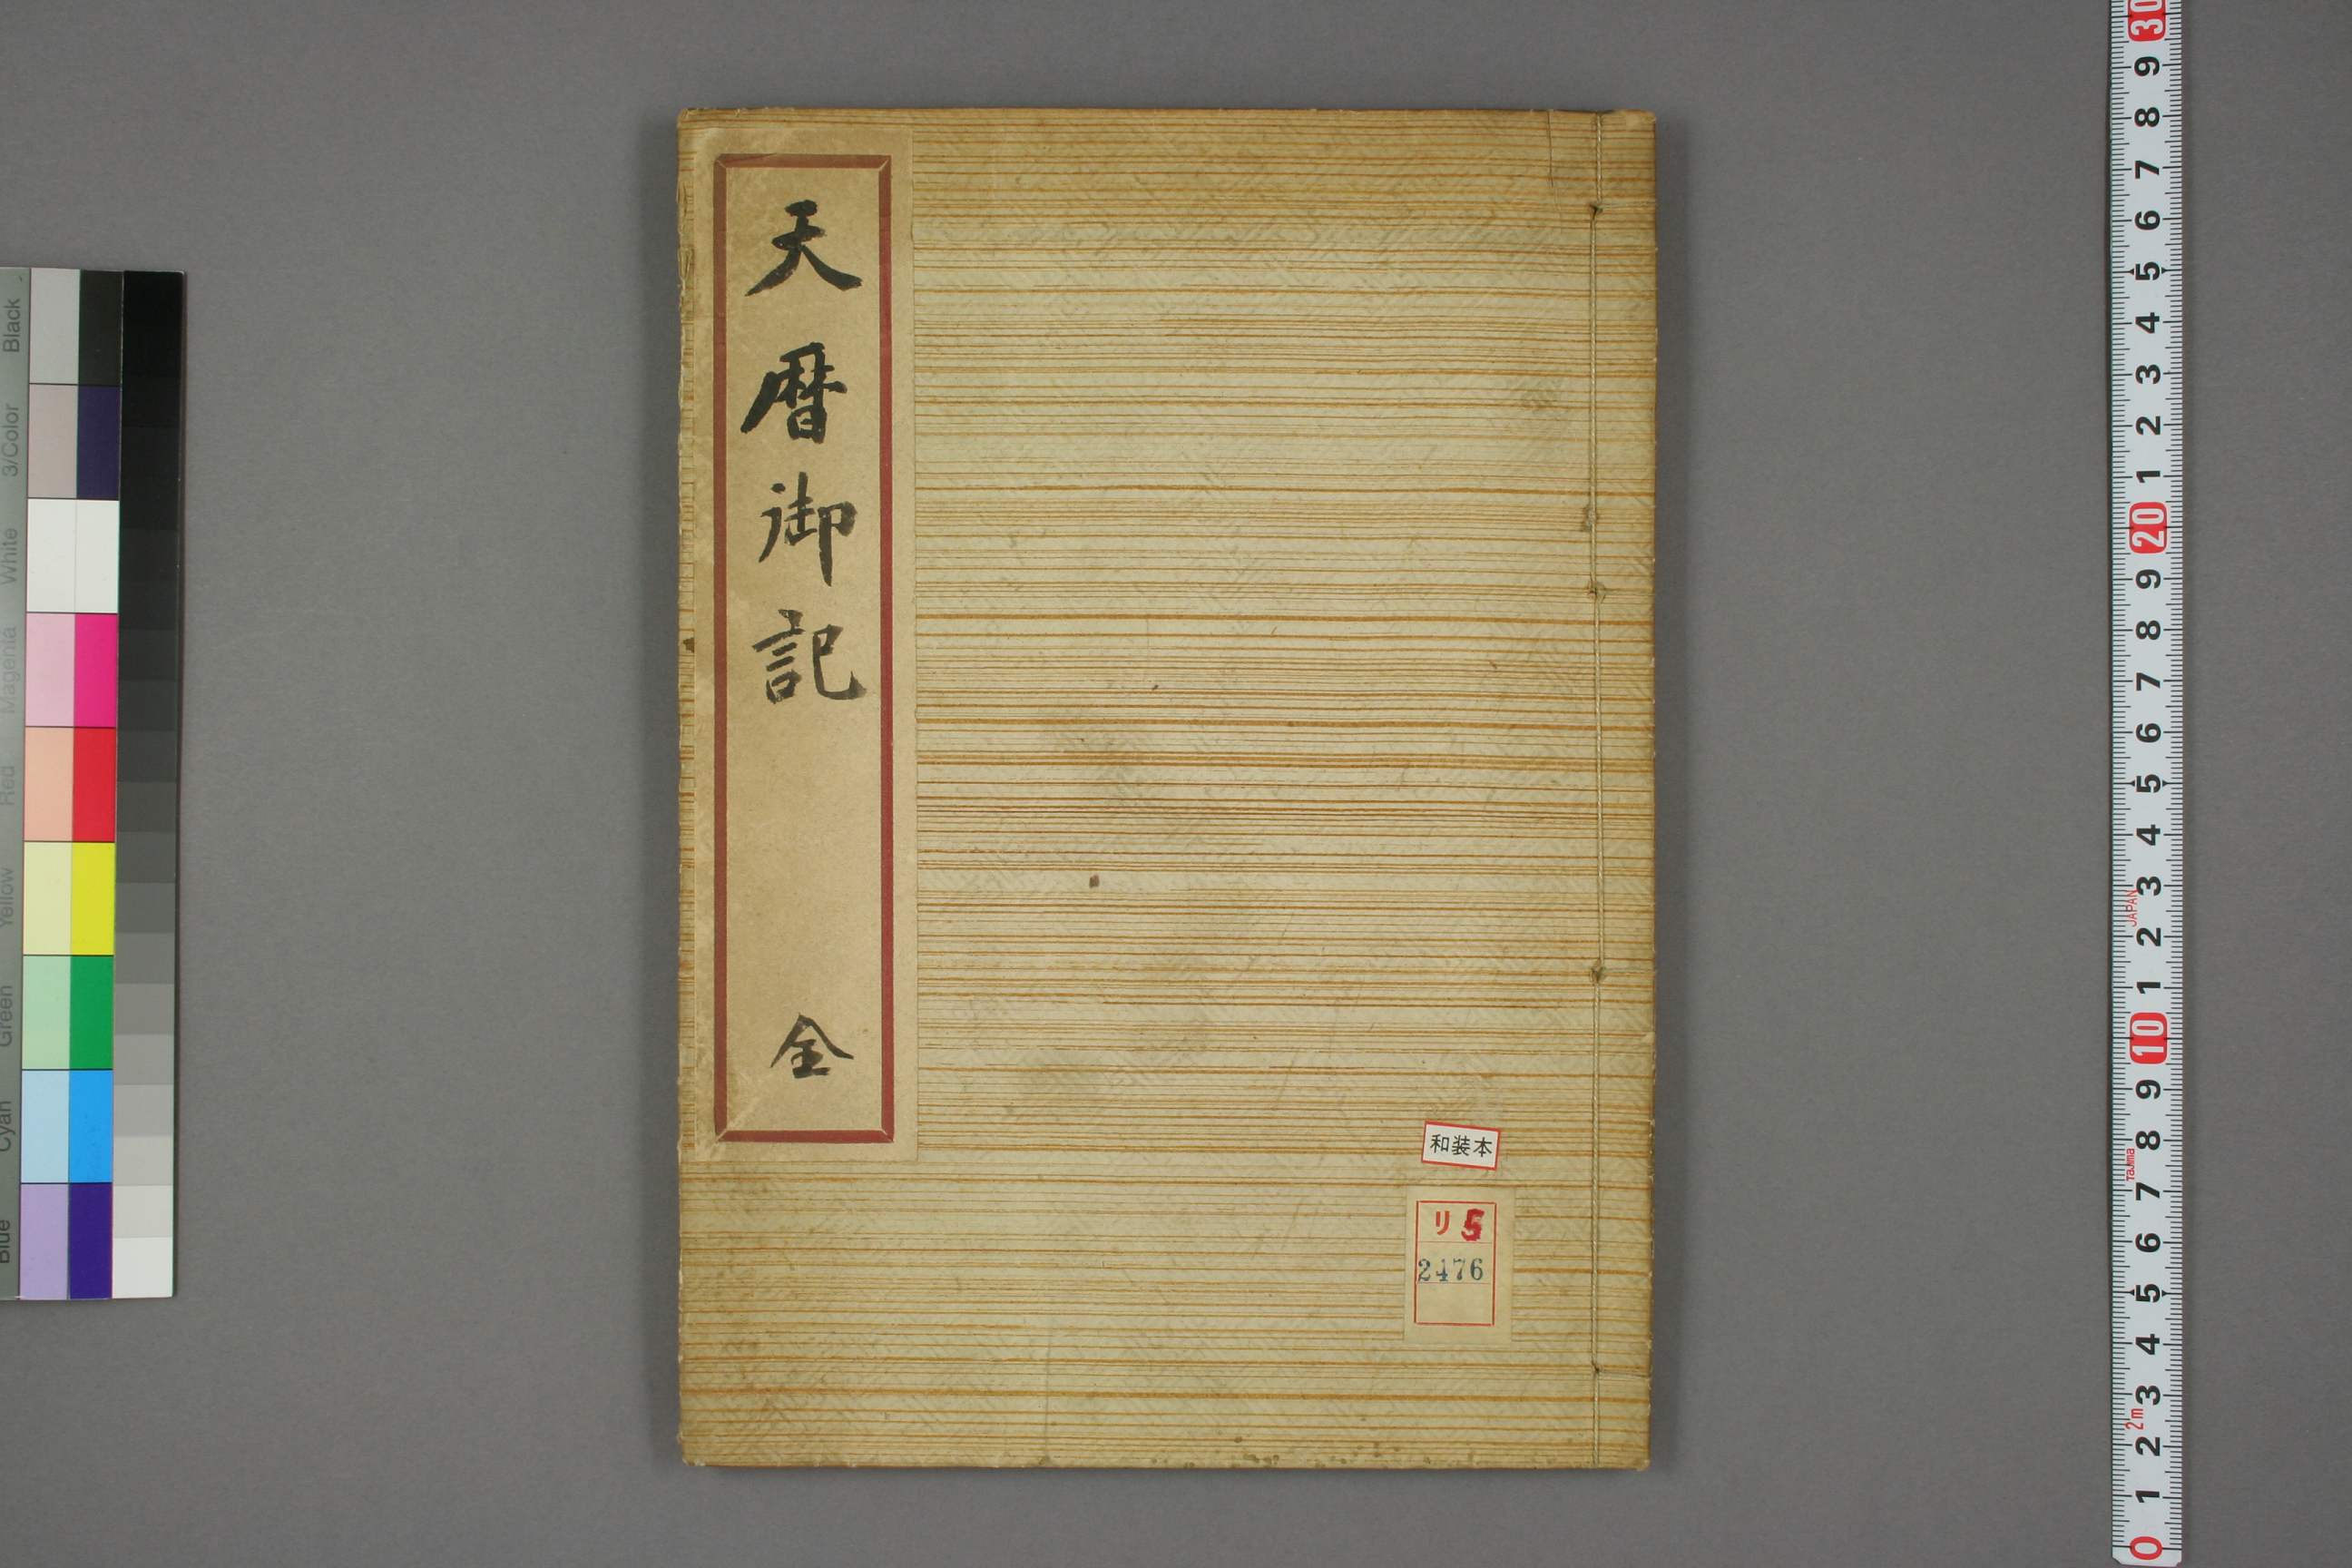 天暦御記
全
和装本
リ5
2476
Black
3/Color
White
Magenta
Red
Yellow
Green
Cyan
Blue
30
9
8
7
6
5
4
3
2
1
20
9
8
7
6
5
4
3
JAPAN
2
1
10
9
8
Tajima
7
6
5
4
3
2m
2
1
0